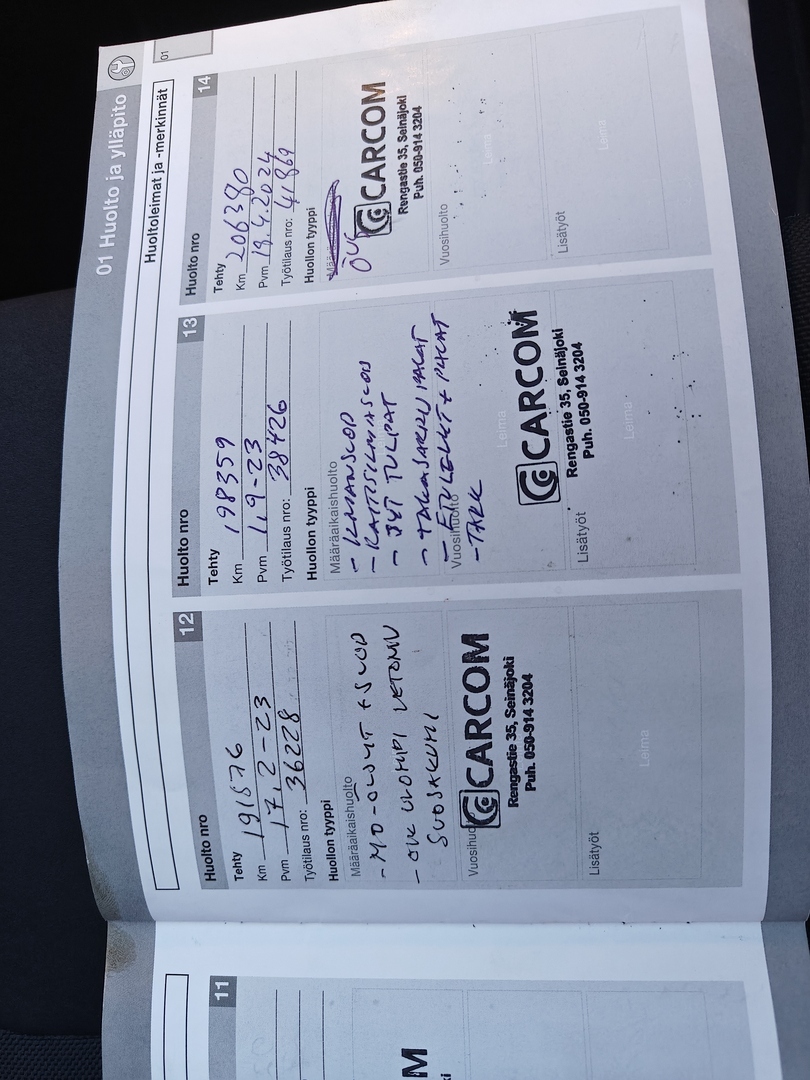 01 Huolto ja ylläpito
Huoltoleimat ja -merkinnät
01
11
Huolto nro 12
Tehty
Km 191576
Pvm 17.2-23
Työtilaus nro: 36228
Huollon tyyppi
Määräaikaishuolto
- MO-ÖLJYT + SUOD
- OVE ULOMPI VETONIV
SUOJAKUMI
Vuosihuo
CARCOM
Rengastie 35, Seinäjoki
Puh. 050-914 3204
Leima
Lisätyöt
Huolto nro 13
Tehty
Km 198359
Pvm 1.9-23
Työtilaus nro: 38426
Huollon tyyppi
Määräaikaishuolto
- ILMANSUOD
- RAITISILMASUOD
- SYT TULPAT
- TAKAJARRUPALAT
- ETULEVYT + PALAT
Vuosihuolto
- TARK
Leima
CARCOM
Rengastie 35, Seinäjoki
Puh. 050-914 3204
Lisätyöt
Leima
Huolto nro 14
Tehty
Km 206380
Pvm 19.4.2024
Työtilaus nro: 41869
Huollon tyyppi
CARCOM
Rengastie 35, Seinäjoki
Puh. 050-914 3204
Vuosihuolto
Leima
Lisätyöt
Leima